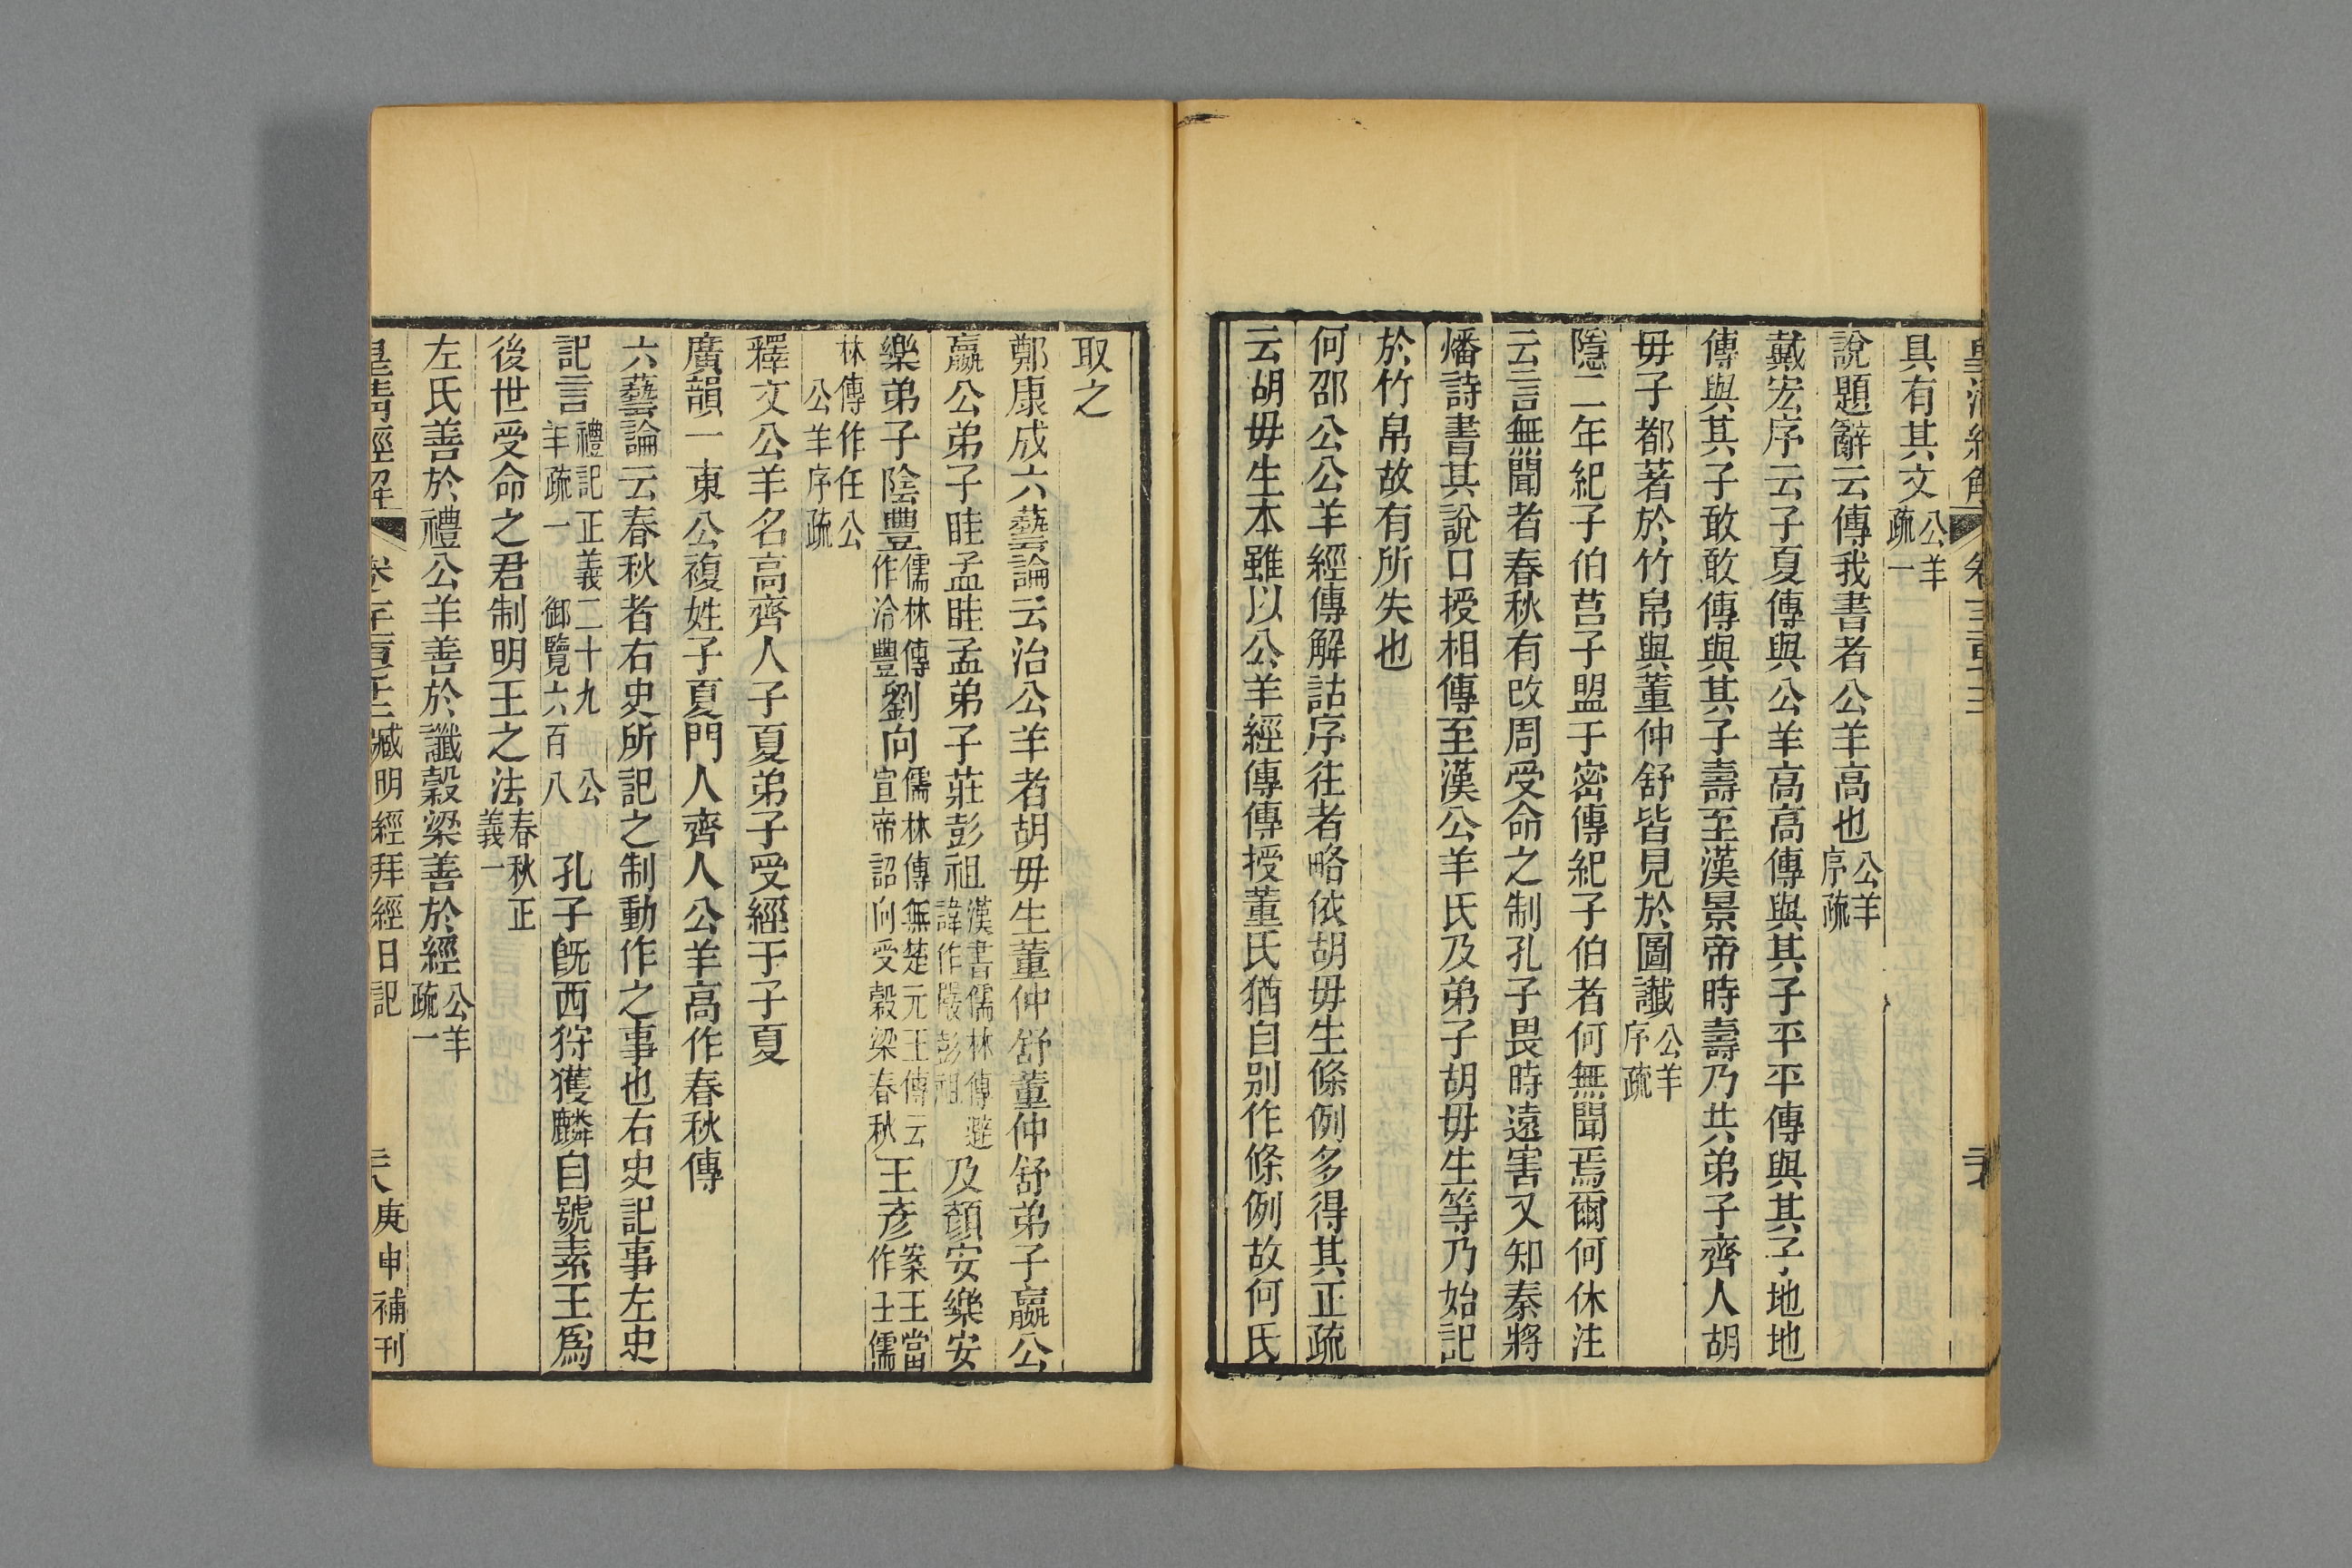 具有其文公羊疏一
說題辭云傳我書者公羊高也公羊序疏
戴宏序云子夏傳與公羊高高傳與其子平平傳與其子地地
傳與其子敢敢傳與其子壽至漢景帝時壽乃共弟子齊人胡
毋子都著於竹帛與董仲舒皆見於圖讖公羊序疏
隱二年紀子伯莒子盟于密傳紀子伯者何無聞焉爾何休注
云言無聞者春秋有改周受命之制孔子畏時遠害又知秦將
燔詩書其說口授相傳至漢公羊氏及弟子胡毋生等乃始記
於竹帛故有所失也
何邵公公羊經傳解詁序往者略依胡毋生條例多得其正疏
云胡毋生本雖以公羊經傳傳授董氏猶自別作條例故何氏
取之
鄭康成六藝論云治公羊者胡毋生董仲舒董仲舒弟子嬴公
嬴公弟子眭孟眭孟弟子莊彭祖漢書儒林傳避諱作嚴彭祖及顏安樂安
樂弟子陰豐儒林傳作泠豐劉向儒林傳無楚元王傳云宣帝詔向受穀梁春秋王彥案王當作壬儒
林傳作任公公羊序疏
釋文公羊名高齊人子夏弟子受經于子夏
廣韻一東公複姓子夏門人齊人公羊高作春秋傳
六藝論云春秋者右史所記之制動作之事也右史記事左史
記言禮記正義二十九公羊疏一御覽六百八孔子旣西狩獲麟自號素王爲
後世受命之君制明王之法春秋正義一
左氏善於禮公羊善於讖穀梁善於經公羊疏一
皇清經解 臧明經拜經日記 庚申補刊